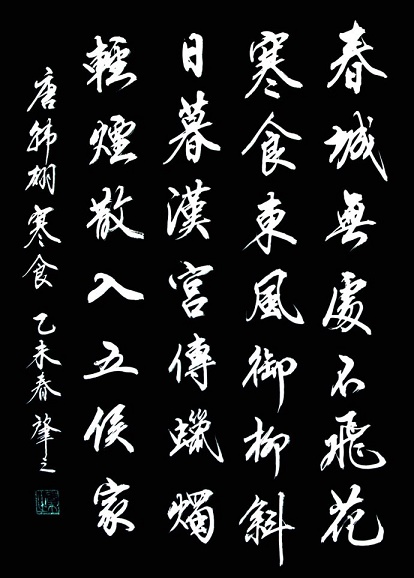 春城無處不飛花
寒食東風御柳斜
日暮漢宮傳蠟燭
輕煙散入五侯家
唐韩翃寒食 乙未春肇之